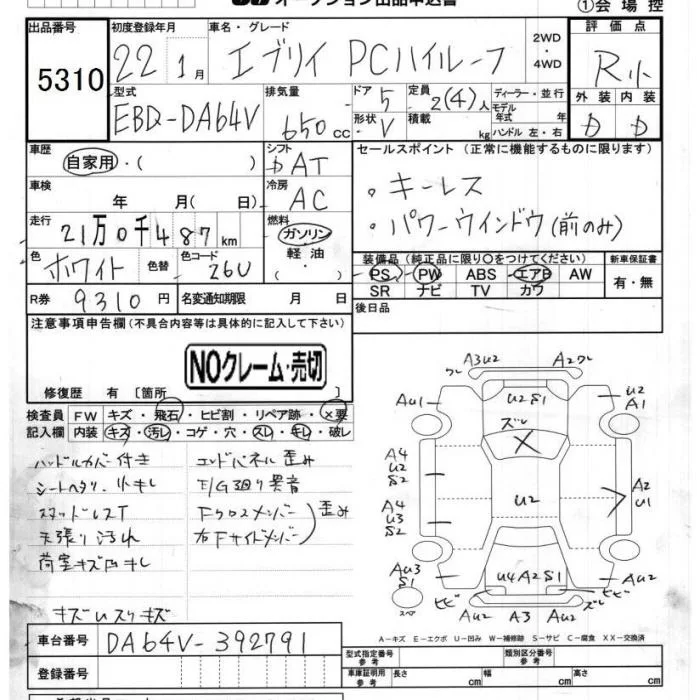 オークション出品申込書
①会場控
出品番号 初度登録年月 車名・グレード 2WD 評価点
5310 22年1月 エブリイ PCハイルーフ ・4WD R小
型式 排気量 ドア 定員 ディーラー・並行 外装 内装
EBD-DA64V 650cc 5 2(4)人 モデル年式 年 D D
形状 積載
V kg ハンドル 左・右
車歴 シフト セールスポイント (正常に機能するものに限ります)
自家用・( ) DAT
車検 冷房 ・キーレス
年 月( 日) AC
走行 燃料 ・パワーウインドウ(前のみ)
21万0千487km ガソリン
色 色替 カラーコード 軽油 装備品 (純正品に限り○をつけてください) 新車保証書
ホワイト 26U ・( ) PS PW ABS エアB AW 有・無
SR ナビ TV カワ
R券 9310円 名変通知期限 月 日 後日品
注意事項申告欄 (不具合内容等は具体的に記入して下さい)
NOクレーム・売切
修復歴 有 〔箇所
検査員 FW キズ・飛石・ヒビ割・リペア跡・×要
記入欄 内装 キズ・汚レ・コゲ・穴・スレ・キレ・破レ
ハンドルカバー付き エンドパネル歪み
シートヘタリ、小キレ F/G廻り異音
スタッドレスT Fクロスメンバー
天張り汚れ 右Fサイドメンバー 歪み
荷室キズ凹キレ
キズUスリキズ
A3U2 A2
U2S1
AU1 U2 A1
ズレ
X
A4 U2 S2
U2
A2 U1
A4 U3 S2
AU3 S1
U4A2S1
AU2
ヒビ ヒビ ズレ
スペア AU2 A3 AU2
A－キズ E－エクボ U－凹み W－補修跡 S－サビ C－腐食 XX－交換済
車台番号 DA64V-392791
登録番号
型式指定番号 参考 類別区分番号 参考
車庫証明用 参考 長さ cm 幅 cm 高さ cm